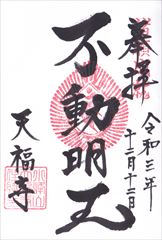 奉拝
令和三年
十二月十二日
不動明王
天福寺